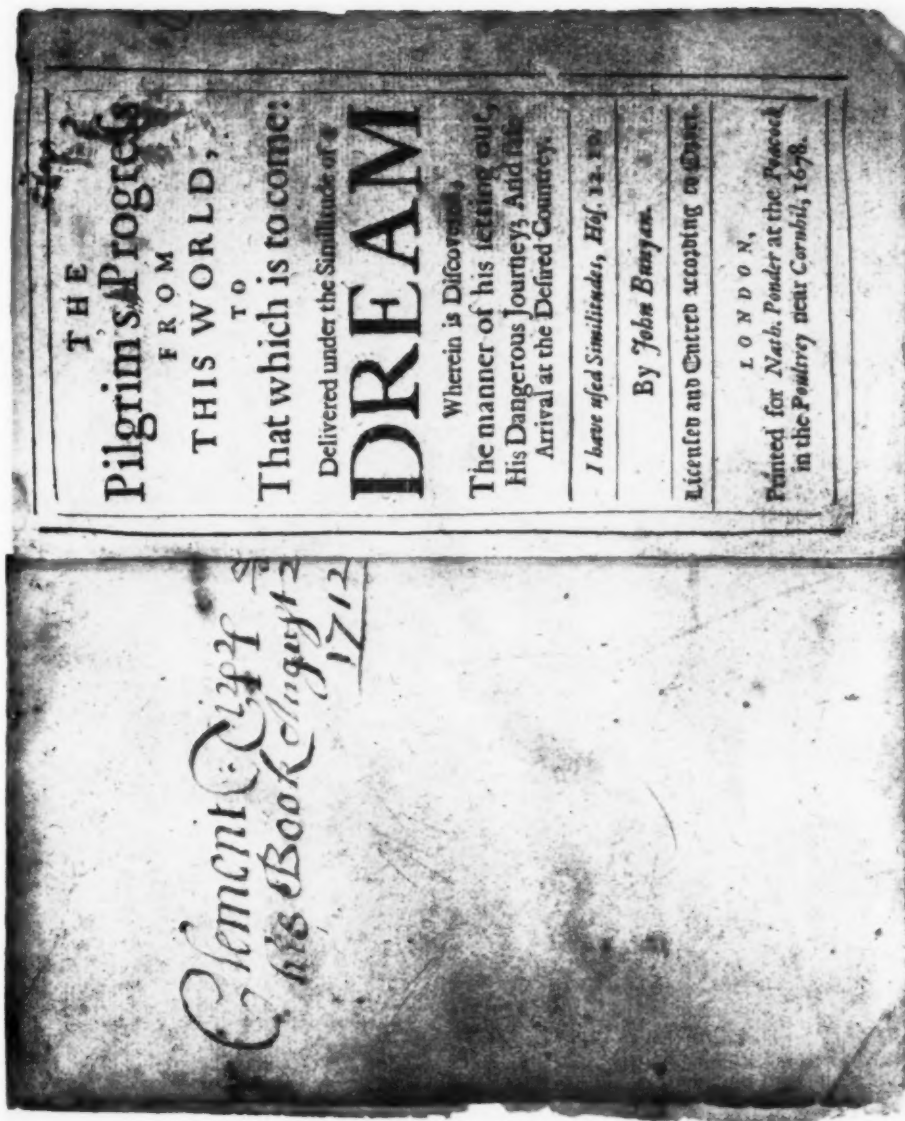 Clement
his Book August 2
1712
THE
Pilgrim's Progreſs
FROM
THIS WORLD,
TO
That which is to come:
Delivered under the Similitude of a
DREAM
Wherein is Diſcovered,
The manner of his ſetting out,
His Dangerous Journey; And ſafe
Arrival at the Deſired Countrey.
I have uſed Similitudes, Hoſ. 12. 10.
By John Bunyan.
Licenſed and Entred according to Order.
LONDON,
Printed for Nath. Ponder at the Peacock
in the Poultrey near Cornhil, 1678.